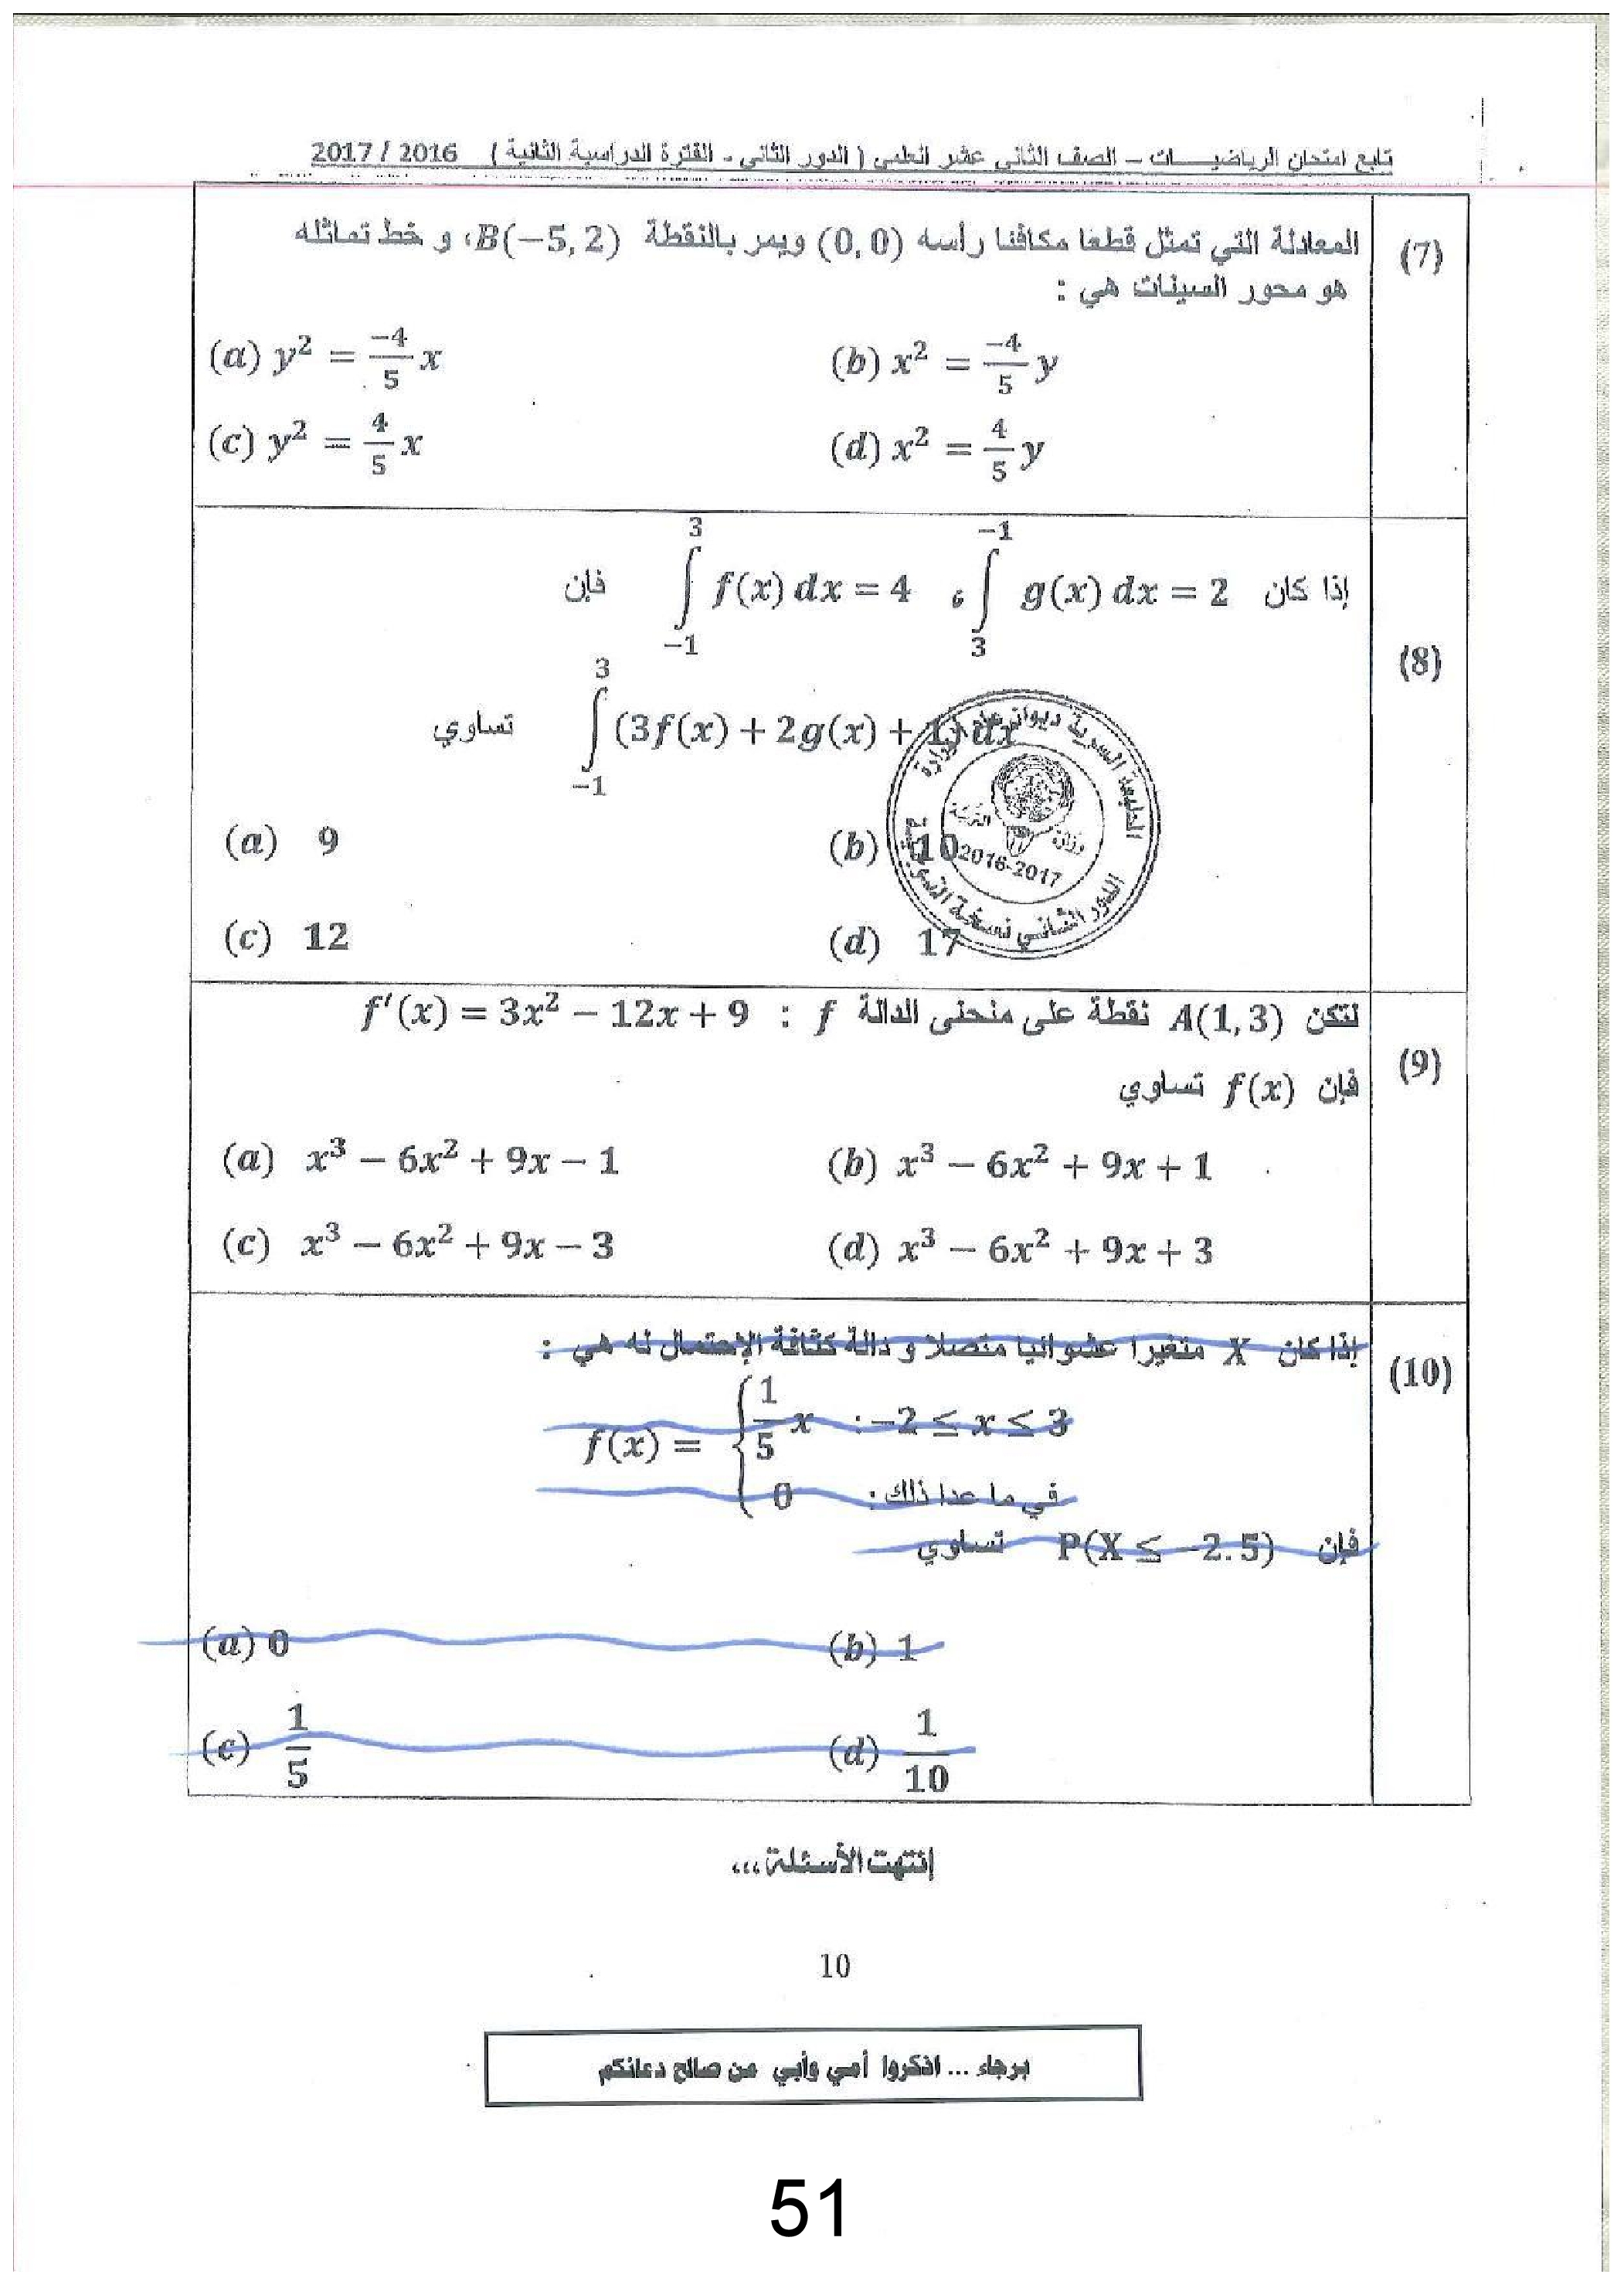 تابع امتحان الرياضيـــــات – الصف الثاني عشر العلمي ( الدور الثاني - الفترة الدراسية الثانية ) 2016 / 2017
(7)
المعادلة التي تمثل قطعا مكافئا رأسه (0, 0) ويمر بالنقطة B(−5, 2)، و خط تماثله
هو محور السينات هي :
(a) y² = −4/5 x (b) x² = −4/5 y
(c) y² = 4/5 x (d) x² = 4/5 y
(8)
إذا كان ∫₃⁻¹ g(x) dx = 2 ، ∫₋₁³ f(x) dx = 4 فإن
∫₋₁³ (3f(x) + 2g(x) + 1) dx تساوي
(a) 9 (b) 10
(c) 12 (d) 17
2016-2017
الدور الثاني
(9)
لتكن A(1, 3) نقطة على منحنى الدالة f : f′(x) = 3x² − 12x + 9
فإن f(x) تساوي
(a) x³ − 6x² + 9x − 1 (b) x³ − 6x² + 9x + 1
(c) x³ − 6x² + 9x − 3 (d) x³ − 6x² + 9x + 3
(10)
إذا كان X متغيرا عشوائيا متصلا و دالة كثافة الإحتمال له هي :
f(x) = { 1/5 x : −2 ≤ x ≤ 3
0 في ما عدا ذلك :
فإن P(X ≤ −2.5) تساوي
(a) 0 (b) 1
(c) 1/5 (d) 1/10
إنتهت الأسئلة،،،
10
برجاء ... اذكروا أمي وأبي من صالح دعائكم
51